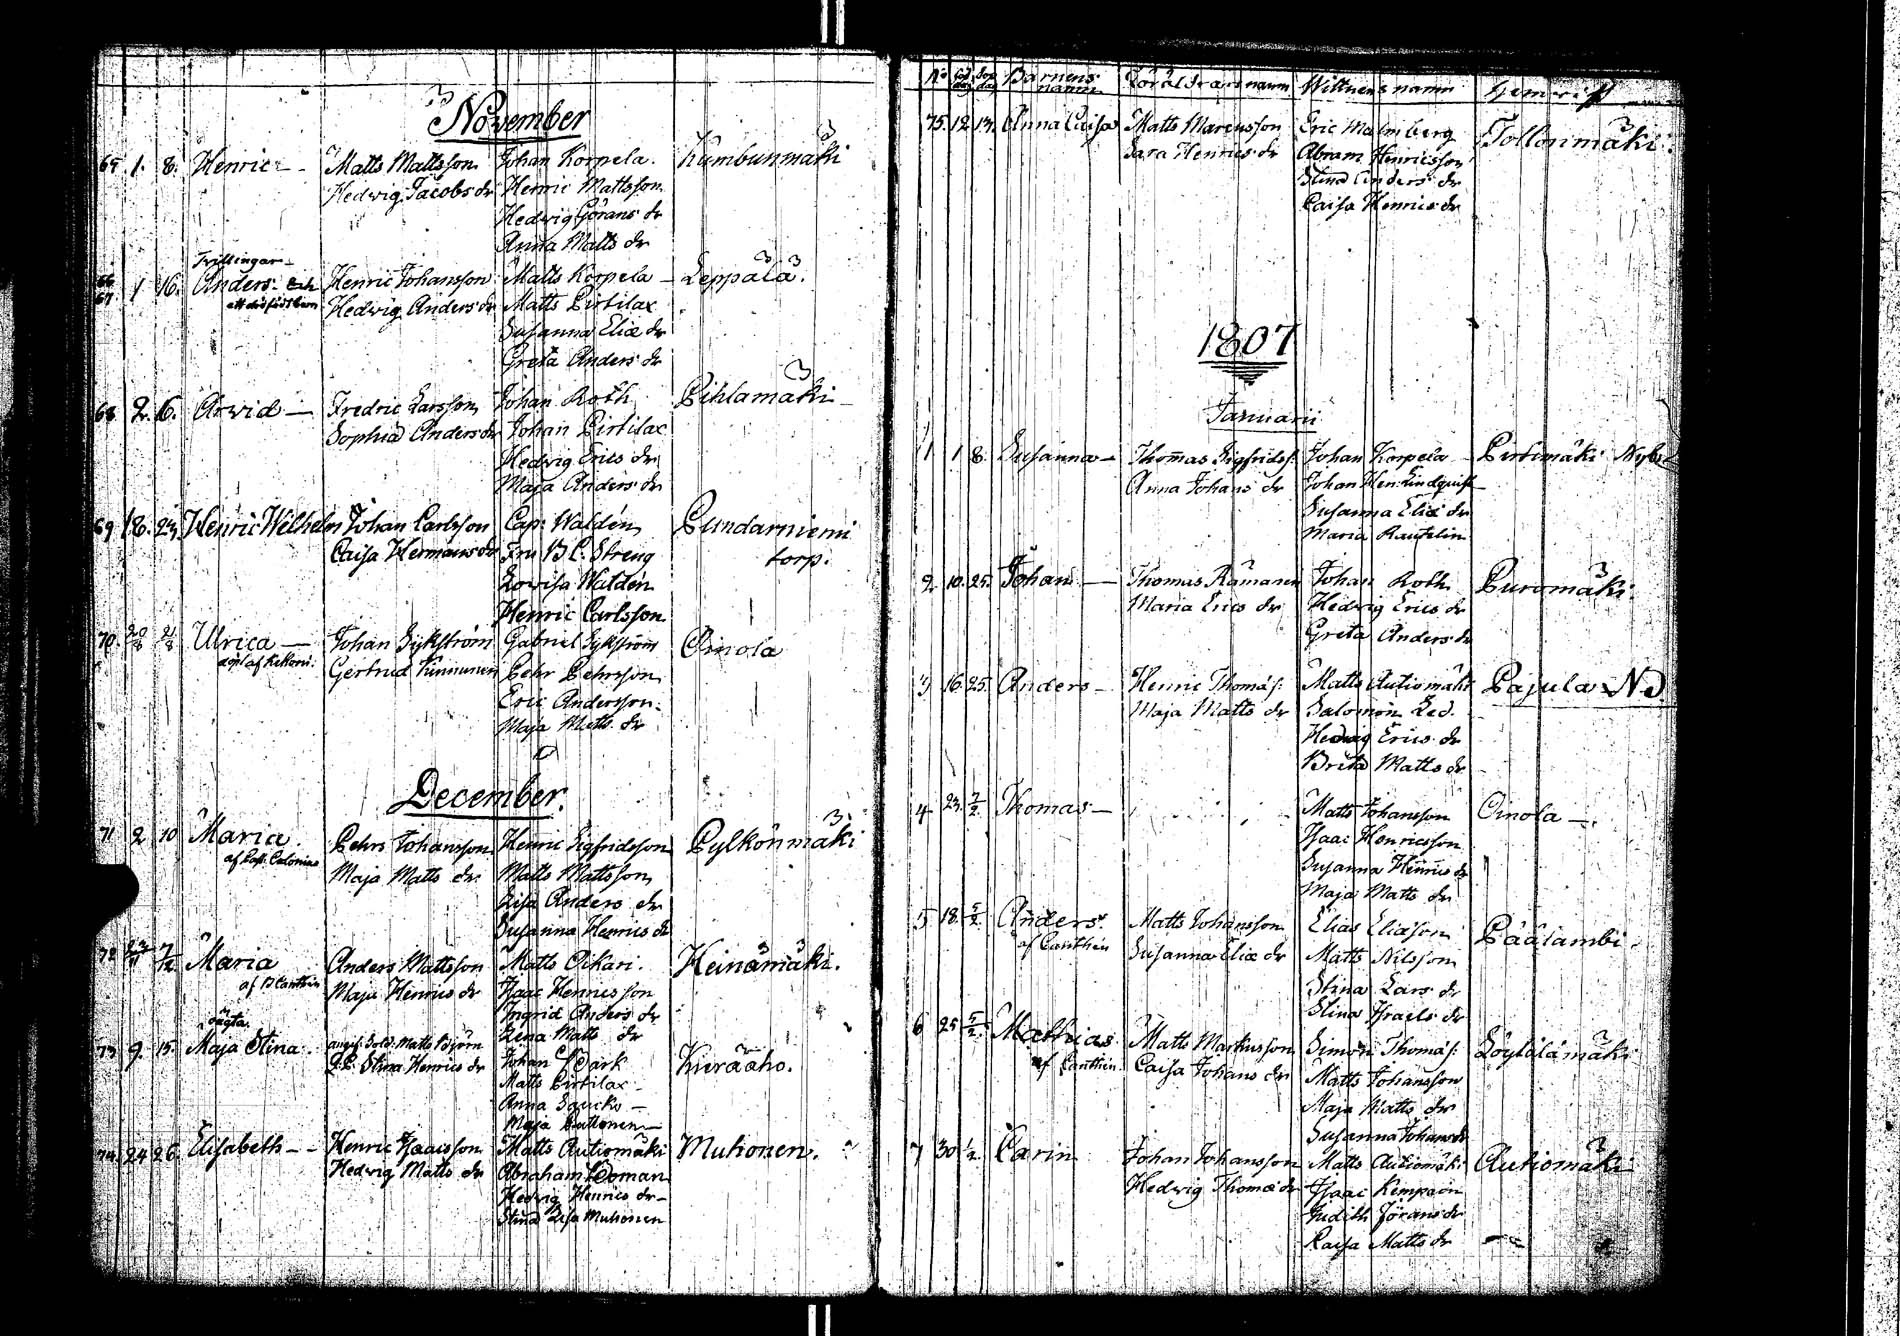 November
65 1. 8. Henric - Matts Mattsson Johan Korpela. Kumbunmäki
Hedvig Jacobs dr Henric Mattsson
Hedwig Görans dr
Anna Matts dr
Tvillingar
66 67 1 16. Anders och Henric Johansson Matts Korpela - Leppälä.
ett dödfödt barn Hedwig Anders dr Matts Pirtilax
Susanna Eliæ dr
Greta Anders dr
68 2. 6. Arvid - Fredric Larsson Johan Roth Pihlamäki
Sophia Anders dr Johan Pirtilax
Hedwig Erics dr
Maja Anders dr
69 18. 23. Henric Wilhelm Johan Carlsson Cap: Waldén Pundarniemi
Caisa Hermans dr Fru B C. Streng torp.
Lovisa Waldén
Henric Carlsson
70. 20/8 21/8 Ulrica - Johan Sykström Gabriel Sykström Oinola
döpt af Kekoni. Gertrud Kinnunen Pehr Pehrsson
Eric Andersson
Maja Matts dr
December.
71 2 10 Maria Pehr Johansson Henric Sigfridsson Pylkönmäki
af Past. Calonius Maja Matts dr Matts Mattsson
Lisa Anders dr
Susanna Henrics dr
72 23/11 7/12 Maria Anders Mattsson Matts Oikari. Heinämäki.
af B Canthén Maja Henrics dr Isaac Henricsson
Ingrid Anders dr
Lena Matts dr
oägta
73 9. 15. Maja Stina. angif. Sold. Matts Björn Johan Stark Kieräaho.
Q.P. Stina Henrics dr Matts Pirtilax
Anna
Maja
74. 24 26. Elisabeth - Henric Isaacsson Matts Autiomäki Muhonen.
Hedwig Matts dr Abraham
Hedwig Henrics dr
Stina Lisa Muhonen
No Föd. dag Döp. dag Barnens namn Föräldrarnes namn Wittnens namn Hemvist
75. 12. 13. Anna Caisa Matts Marcusson Eric Malmberg Tollonmäki.
Sara Henrics dr Abram Henricsson
Stina Anders dr
Caisa Henrics dr
1807
Januarii
1 1 8. Susanna - Thomas Sigfridss: Johan Korpela Pirtimäki Nyb.
Anna Johans dr Johan Hen: Lindquist
Susanna Eliæ dr
Maria Rautelin
2 10. 25. Johan - Thomas Rämänen Johan Roth Puromäki.
Maria Erics dr Hedwig Erics dr
Greta Anders dr
3 16. 25. Anders - Henric Thomæs: Matts Autiomäki Pajula
Maja Matts dr Salomon Led.
Hedwig Erics dr
Brita Matts dr
4 23. 7/2 Thomas - Matts Johansson Oinola -
Isaac Henricsson
Susanna Henrics dr
Maja Matts dr
5 18. 5/2 Anders Matts Johansson Elias Eliæson Päälambi
af Canthén Susanna Eliæ dr Matts Nilsson
Stina Lars dr
Stina Israels dr
6 25 5/2. Mathias Matts Markusson Simon Thomæs: Löytälämäki
af Canthén. Caisa Johans dr Matts Johansson
Maja Matts dr
Susanna Johans dr
7 30 1/2. Carin Johan Johansson Matts Autiomäki Autiomäki
Hedwig Thomæ dr Isaac Kempain
Judith Jörans dr
Kaisa Matts dr